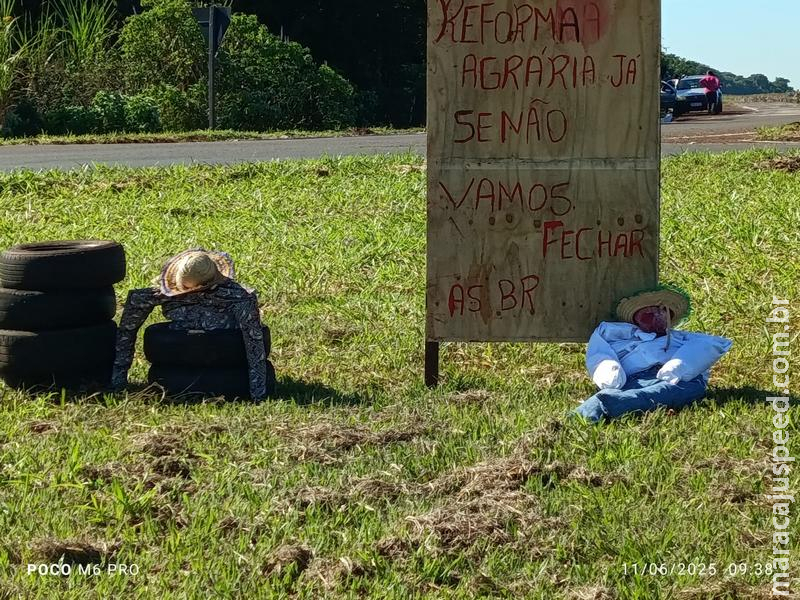 REFORMAA
AGRÁRIA JÁ
SENÃO
VAMOS.
FECHAR
AS BR
maracajuspeed.com.br
POCO M6 PRO
11/06/2025 09:38